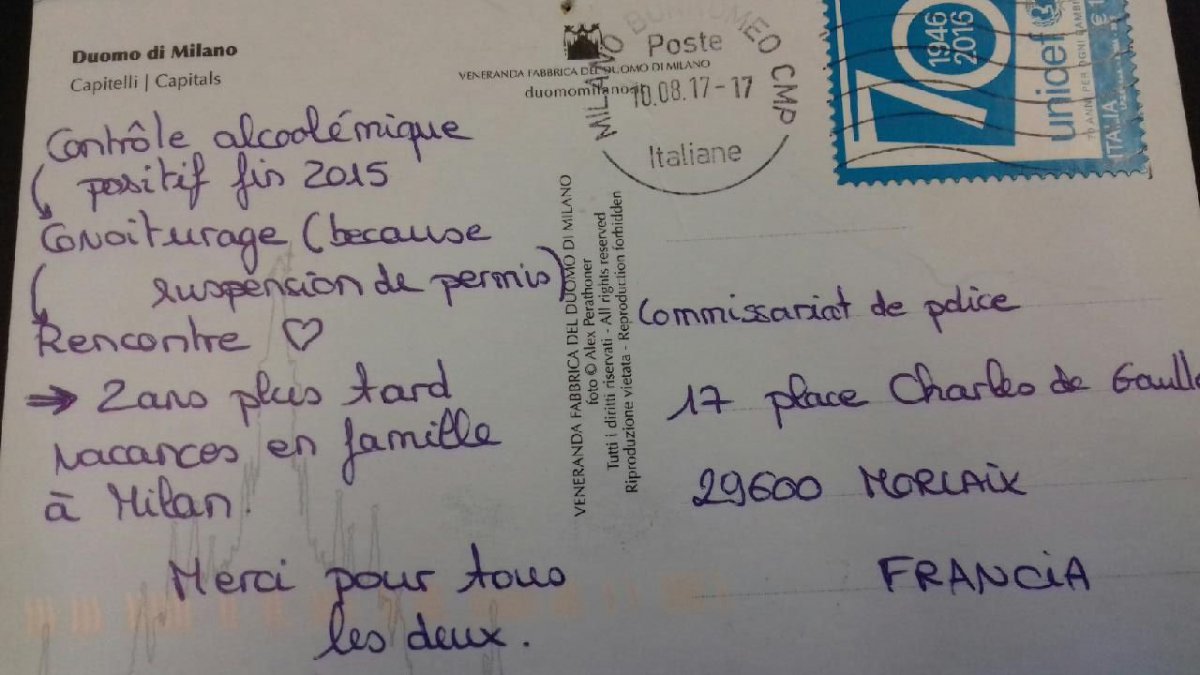 Duomo di Milano
Capitelli | Capitals
VENERANDA FABBRICA DEL DUOMO DI MILANO
duomomilano.it
MILANO BORROMEO CMP
Poste
10.08.17-17
Italiane
1946
2016
70
unicef
70 ANNI PER OGNI BAMBI
ITALIA
Contrôle alcoolémique
positif fin 2015
Covoiturage (because
suspension de permis)
Rencontre ♡
⇒ 2 ans plus tard
vacances en famille
à Milan.
Merci pour tous
les deux.
VENERANDA FABBRICA DEL DUOMO DI MILANO
foto © Alex Perathoner
Tutti i diritti riservati - All rights reserved
Riproduzione vietata - Reproduction forbidden
Commissariat de police
17 place Charles de Gaulle
29600 MORLAIX
FRANCiA